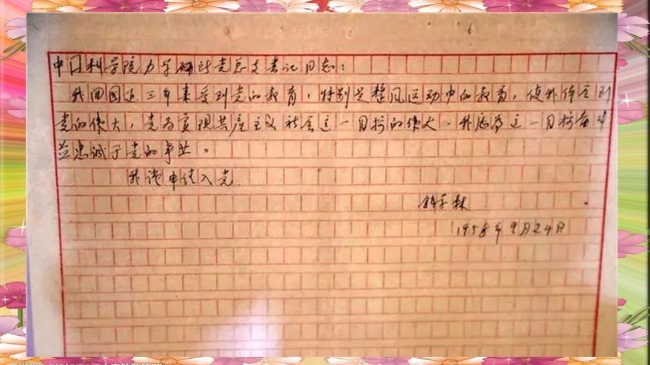 中国科学院力学研究所党总支书记同志:
我回国近三年来受到党的教育,特别是整风运动中的教育,使我体会到
党的伟大,党为实现共产主义社会这一目标的伟大。我愿为这一目标奋斗
并忠诚于党的事业。
我谨申请入党
钱学森
1958年9月24日